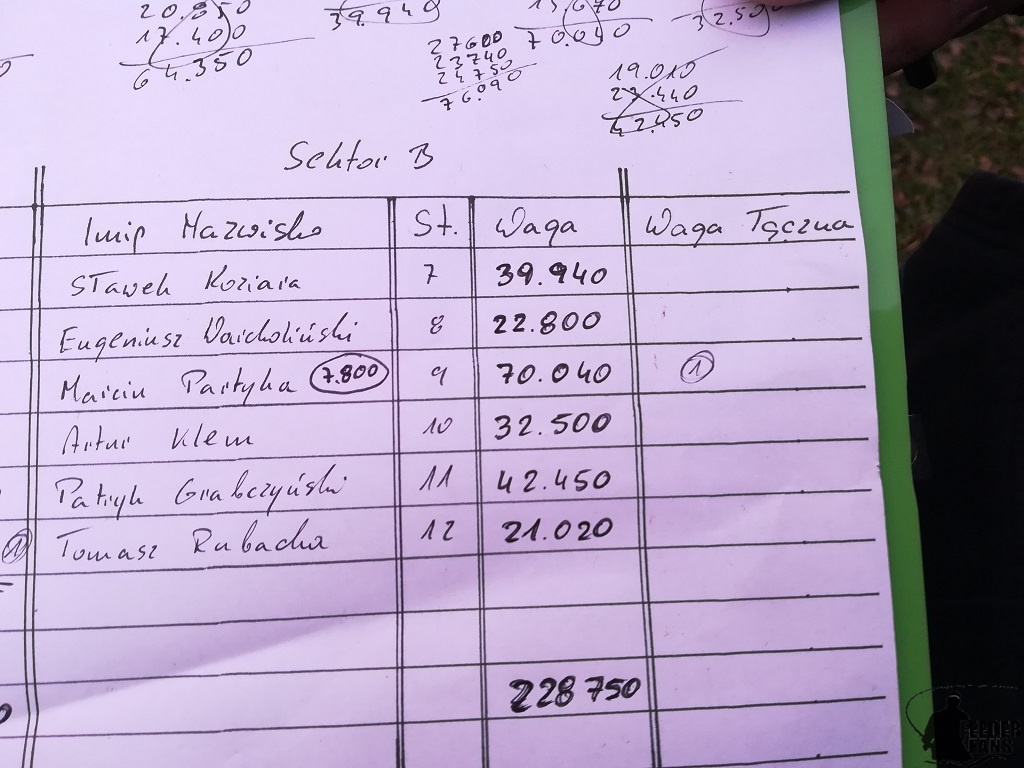 20.850
17.400
64.350
39.940
27600
23740
24750
76.090
70.040
32.500
19.010
42.450
Sektor B
Imię Nazwisko St. Waga Waga Łączna
Sławek Koziara 7 39.940
Eugeniusz 8 22.800
Marcin Partyka 7.800 9 70.040 1
Artur Klem 10 32.500
Patryk Grabczyński 11 42.450
1 Tomasz Rubacha 12 21.020
228 750
FEEDER
FANS